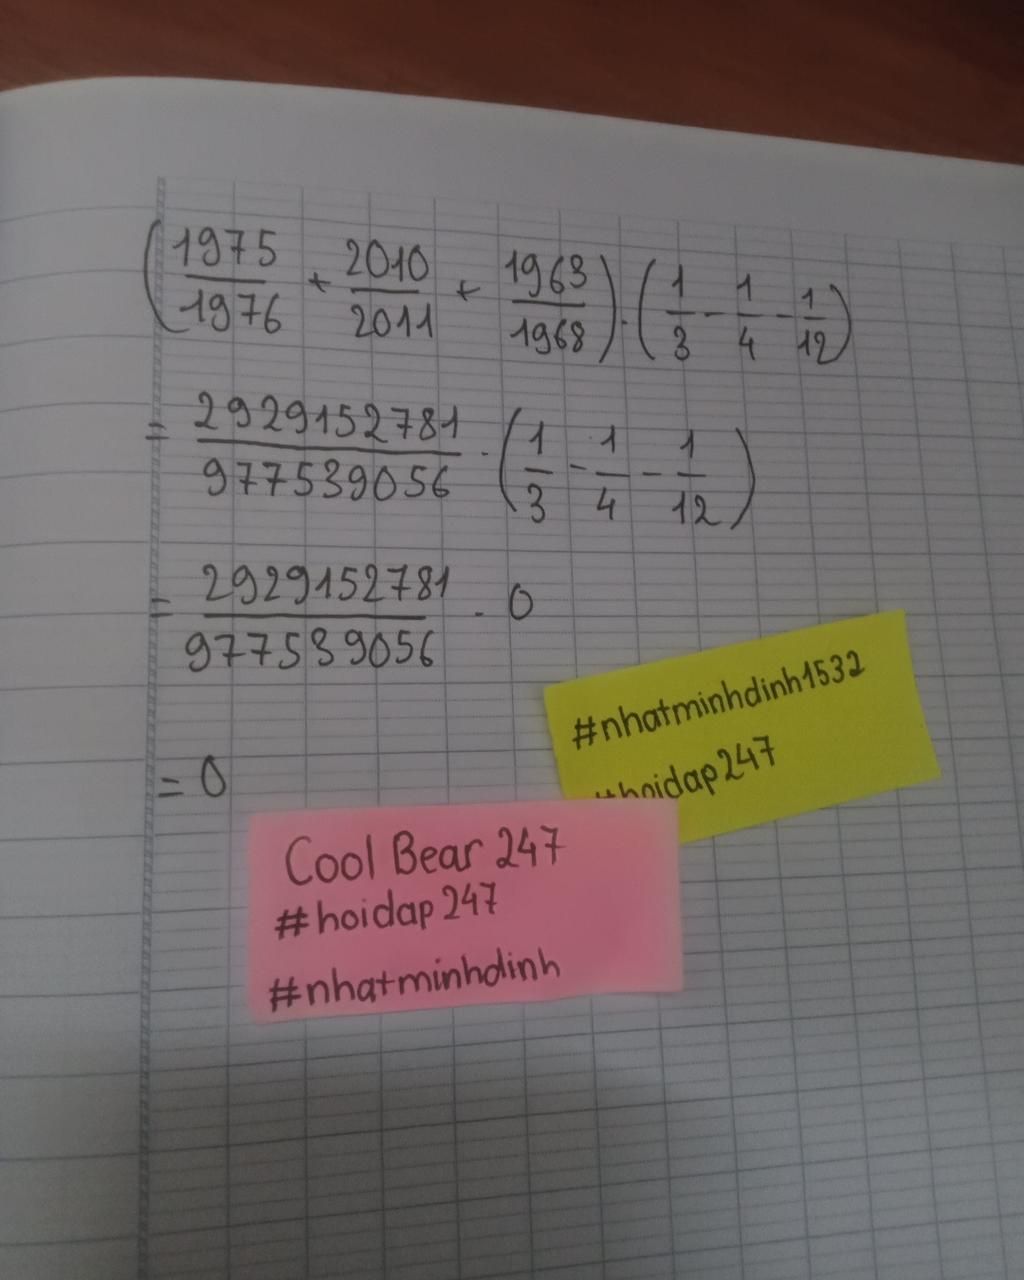 (1975/1976 + 2010/2011 + 1963/1968) . (1/3 - 1/4 - 1/12)
= 2929152781/977539056 . (1/3 - 1/4 - 1/12)
= 2929152781/977539056 . 0
= 0
#nhatminhdinh1532
#hoidap247
Cool Bear 247
#hoidap247
#nhatminhdinh